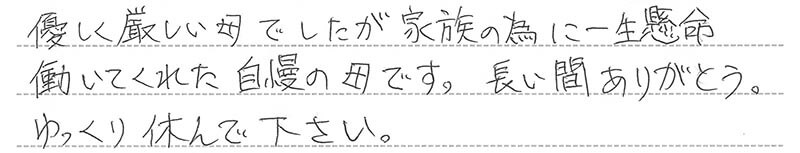 優しく厳しい母でしたが家族の為に一生懸命
働いてくれた自慢の母です。長い間ありがとう。
ゆっくり休んで下さい。